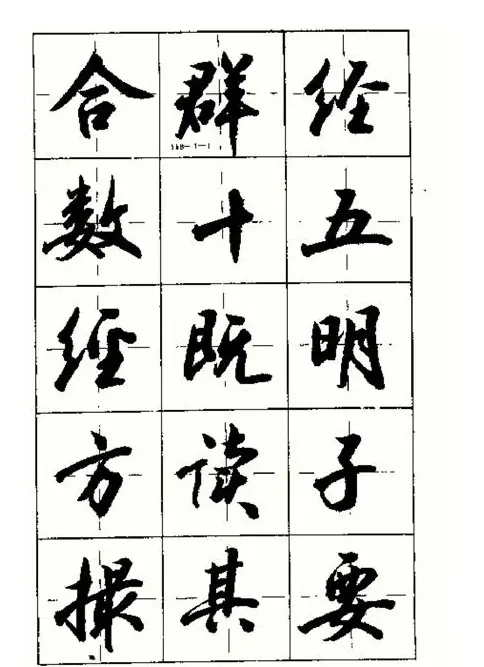 合群经
数十五
經既明
方读子
撮其要